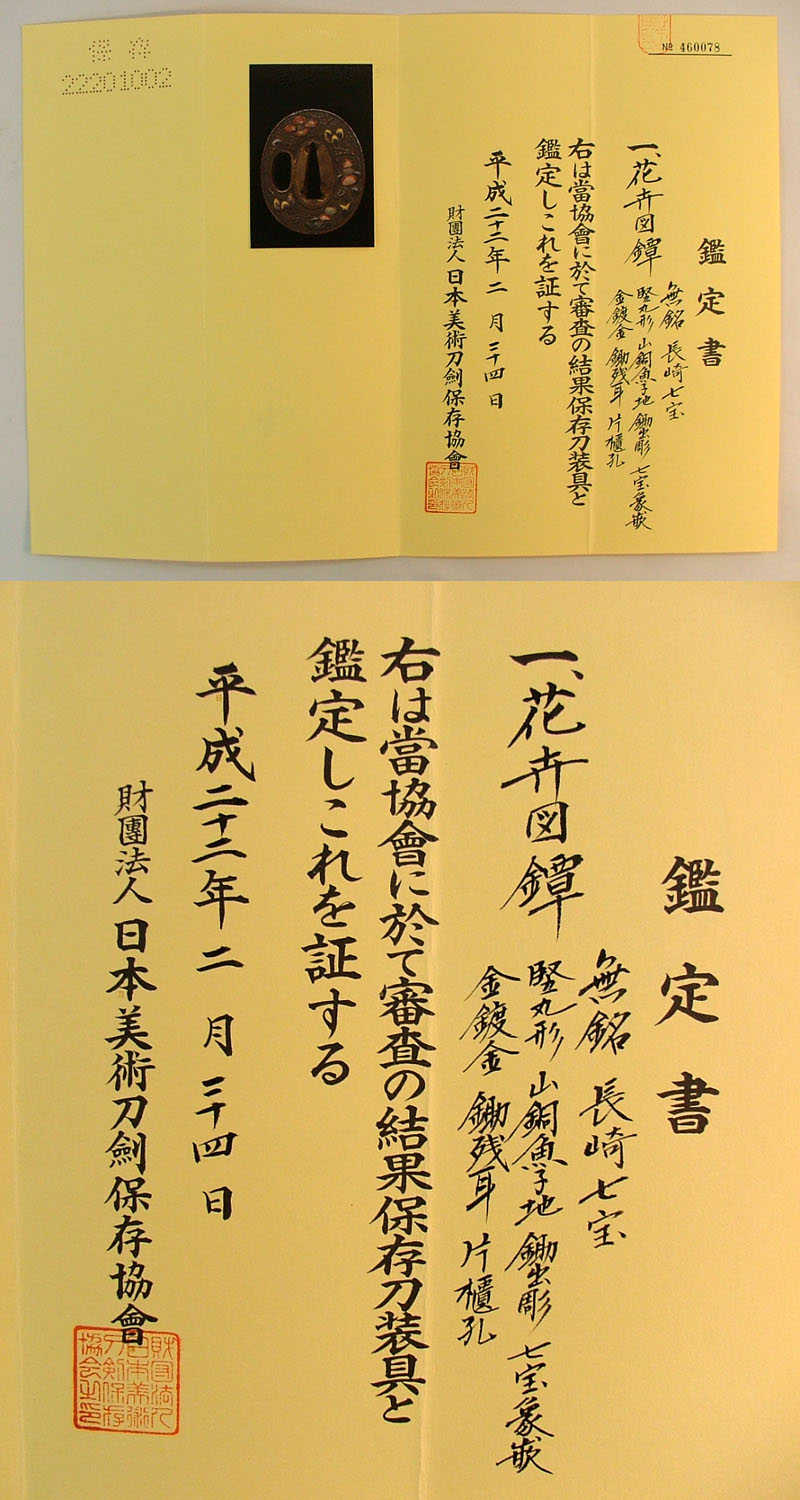 保存
22201002
№ 460078
鑑定書
一、花卉図鐔
無銘 長崎七宝
竪丸形 山銅魚子地 鋤出彫 七宝象嵌
金鍍金 鋤残耳 片櫃孔
右は當協會に於て審査の結果保存刀装具と
鑑定しこれを証する
平成二十二年二月二十四日
財團法人 日本美術刀劍保存協會
鑑定書
一、花卉図鐔
無銘 長崎七宝
竪丸形 山銅魚子地 鋤出彫 七宝象嵌
金鍍金 鋤残耳 片櫃孔
右は當協會に於て審査の結果保存刀装具と
鑑定しこれを証する
平成二十二年二月二十四日
財團法人 日本美術刀劍保存協會
財団法人
日本美術
刀剣保存
協会之印